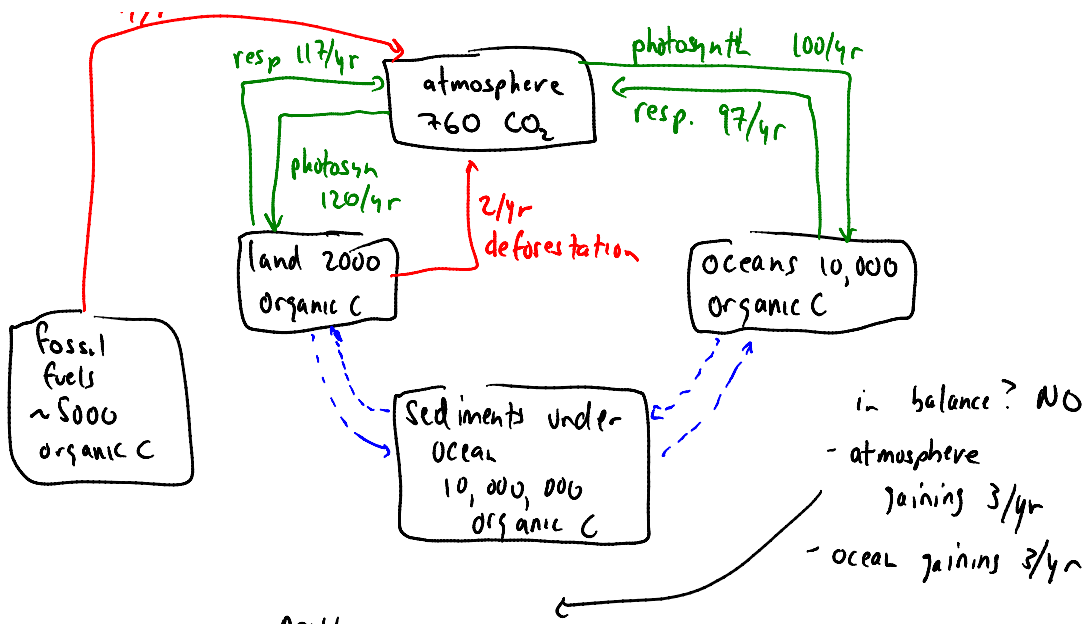 resp 117/yr
photosynth 100/yr
atmosphere
760 CO₂
resp. 97/yr
photosyn
120/yr
2/yr
deforestation
land 2000
organic C
oceans 10,000
organic C
fossil
fuels
~5000
organic C
sediments under
ocean
10,000,000
organic C
in balance? NO
- atmosphere
gaining 3/yr
- ocean gaining 3/yr